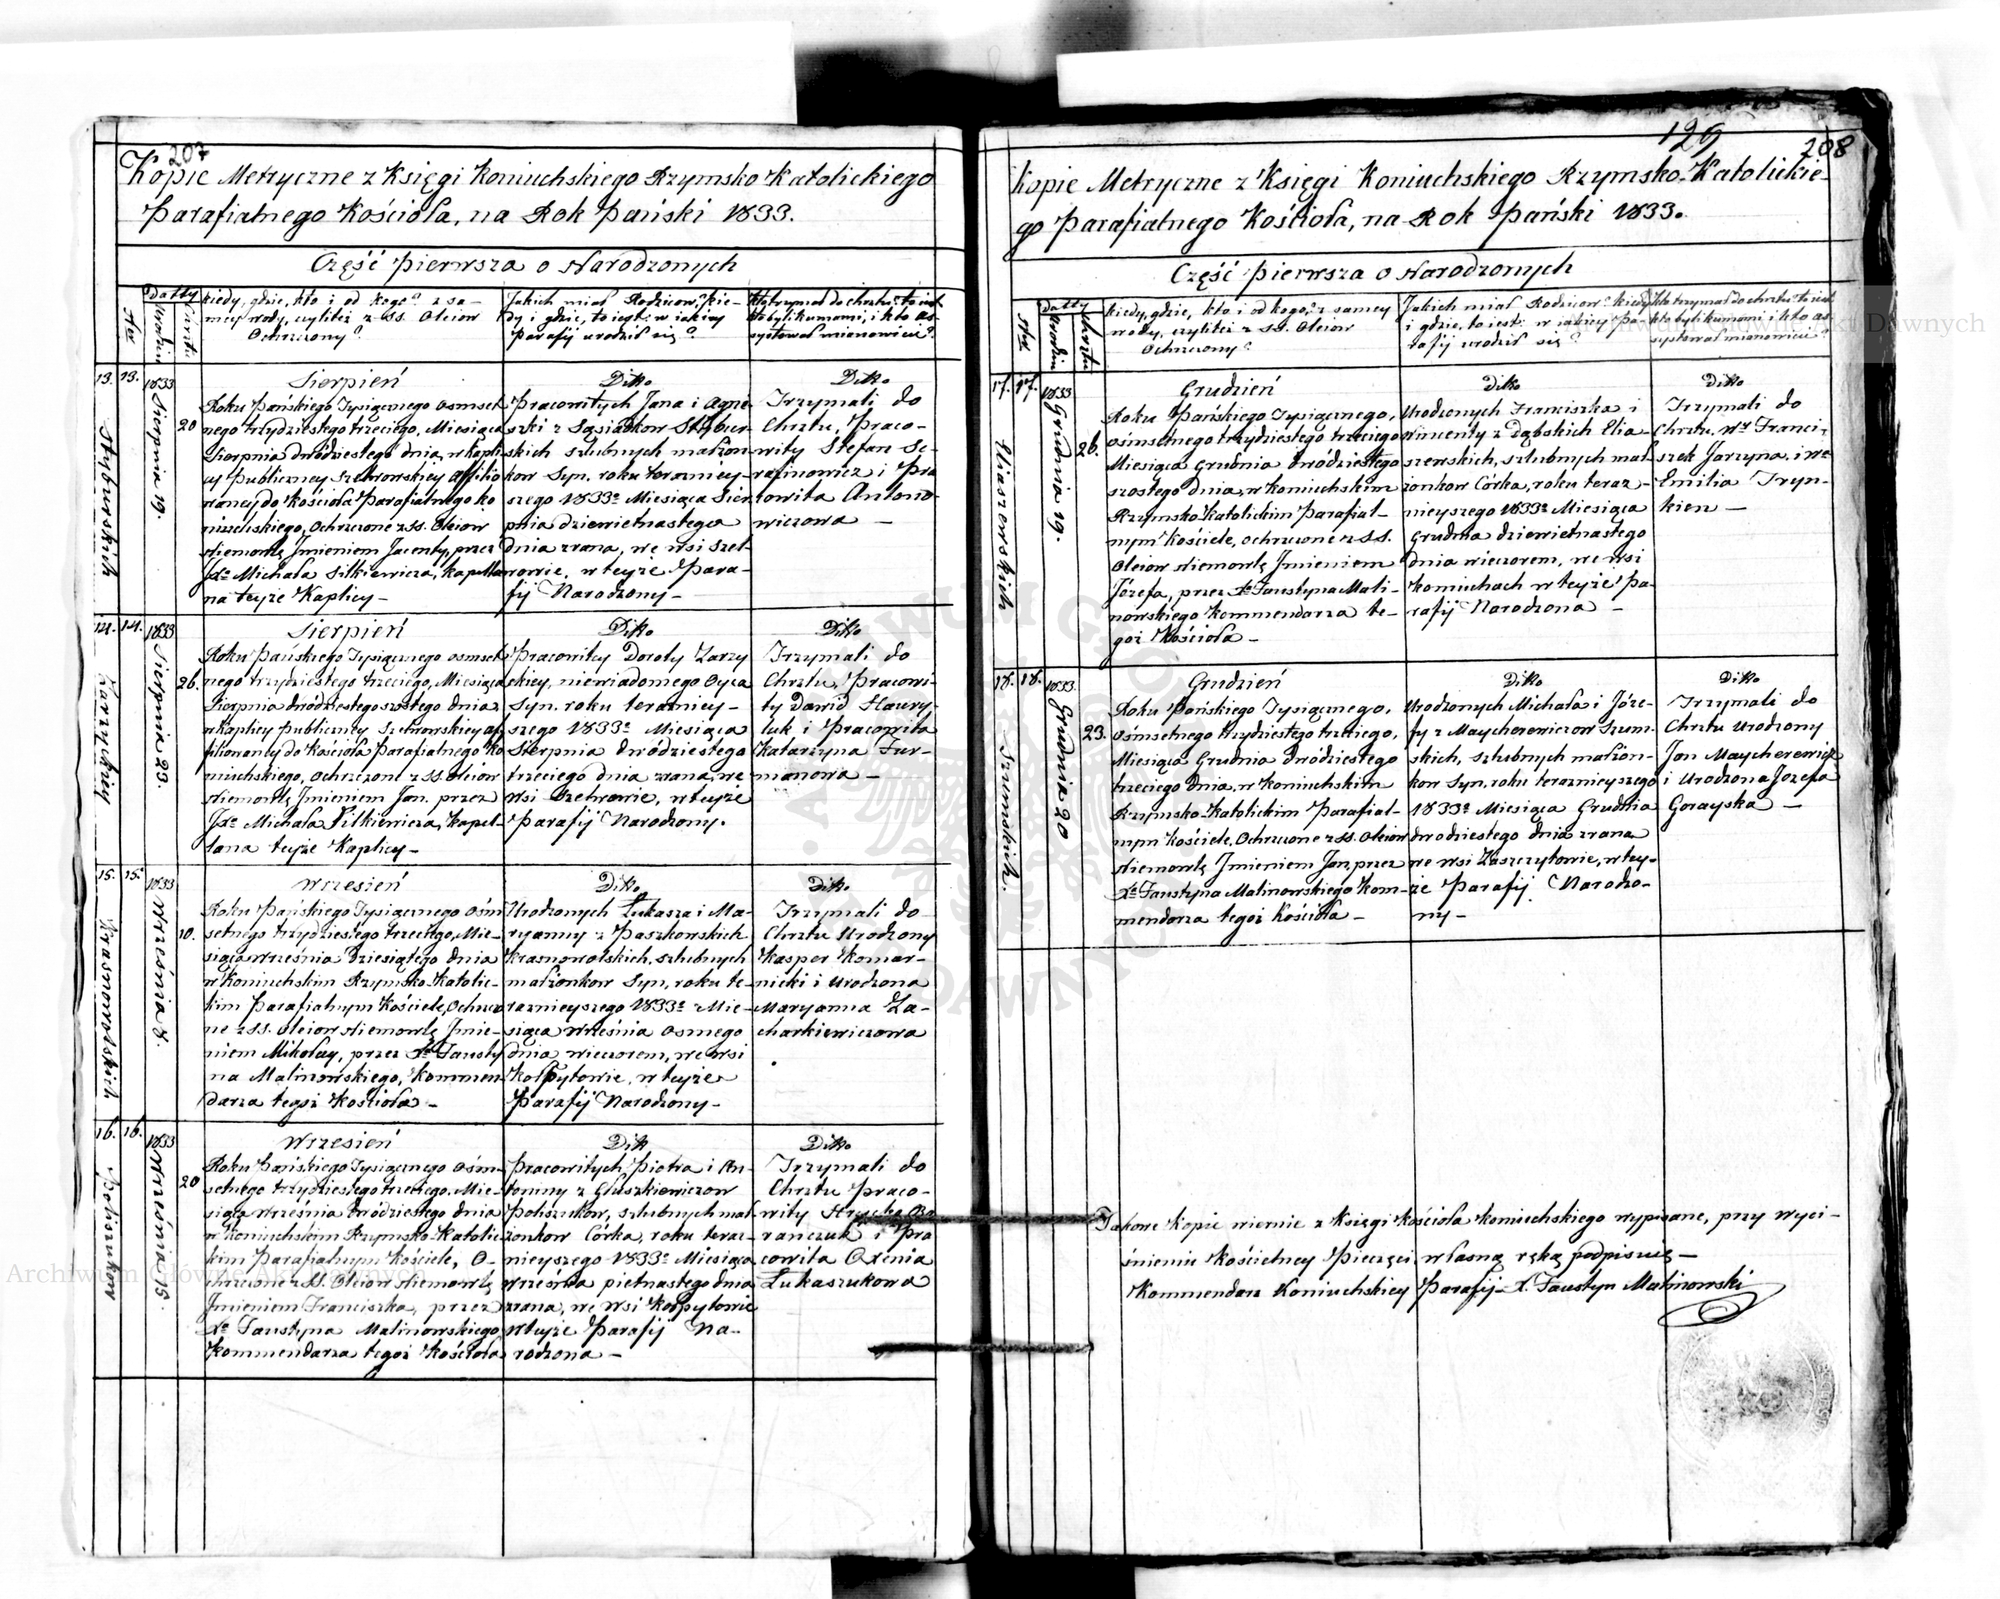 207
Kopie Metryczne z Księgi Koniuchskiego Rzymsko Katolickiego
Parafialnego Kościoła, na Rok Pański 1833.
Część pierwsza o Narodzonych
Datty
kiedy, gdzie, kto i od kogo? z sa-
mey wody, czyliteż z SS. Oleiow
Ochrzczony?
Jakich miał Rodzicow? kie-
dy i gdzie, to iest: w iakiey
Parafij urodził się?
kto trzymał do chrztu? to iest
kto byli kumami, i kto as-
systował mianowicie?
13. 13. 1833 Sierpnia 19. 20
Styburskich
Sierpień
Roku Pańskiego Tysiącznego osmset
nego trzydziestego trzeciego, Miesiąca
Sierpnia dwódziestego dnia, w kapli
cy publiczney Szelwowskiey affilio
waney do Kościoła Parafialnego Ko
niuchskiego, Ochrzczone z SS. Oleiow
Niemowlę Jmieniem Jacenty, przez
Xa Michała Sitkiewicza, kapella
na teyże Kaplicy-
Ditto
Pracowitych Jana i Agnie
szki z Sąsiadkow Stybur-
skich szlubnych małżon-
kow Syn, roku teraźniey-
szego 1833o Miesiąca Sier
pnia dziewietnastego
dnia zrana, we wsi Szel-
wowie, w teyże Para-
fij Narodzony-
Ditto
Trzymali do
Chrztu, Praco-
wity Stefan Se-
rafinowicz i Pra
cowita Antono-
wiczowa -
14. 14. 1833 Sierpnia 23. 26.
Zarzyckiey
Sierpień
Roku Pańskiego Tysiącznego osmset
nego trzydziestego trzeciego, Miesiąca
Sierpnia dwódziestego szóstego dnia
w Kaplicy publiczney Szelwowskiey af
filiowaney do Kościoła Parafialnego Ko
niuchskiego, Ochrzczone z SS. Oleiow
Niemowlę Jmieniem Jan, przez
Xa Michała Sitkiewicza, Kapel-
lana teyże Kaplicy-
Ditto
Pracowitey Doroty Zarzy
ckiey, niewiadomego Oyca
Syn, roku teraźniey-
szego 1833o Miesiąca
Sierpnia dwódziestego
trzeciego dnia zrana, we
wsi Szelwowie, w teyże
Parafij Narodzony.
Ditto
Trzymali do
Chrztu, Pracowi-
ty Dawid Hawry-
luk i Pracowita
Katarzyna Fur-
manowa -
15. 15. 1833 Września 8. 10.
Krasnowolskich
Wrzesień
Roku Pańskiego Tysiącznego Ośm
setnego trzydziestego trzeciego, Mie-
siąca Września dziesiątego dnia
w Koniuchskim Rzymsko-Katolic-
kim Parafialnym Kościele, Ochrzczo
ne z SS. Oleiow Niemowlę Jmie-
niem Mikołay, przez Xa Fausty
na Malinowskiego, Kommen
darza tegoż Kościoła -
Ditto
Urodzonych Łukasza i Ma-
ryanny z Paszkowskich
Krasnowolskich, szlubnych
małżonkow Syn, roku te-
raźnieyszego 1833o Mie-
siąca Września osmego
dnia wieczorem, we wsi
Kołpytowie, w teyże
Parafij Narodzony-
Ditto
Trzymali do
Chrztu Urodzony
Kasper Komar-
nicki i Urodzona
Maryanna Za-
charkiewiczowa
16. 16. 1833 Września 15. 20
Poliszukow
Wrzesień
Roku Pańskiego Tysiącznego Ośm-
setnego trzydziestego trzeciego, Mie-
siąca Września dwódziestego dnia
w Koniuchskim Rzymsko-Katolic
kim Parafialnym Kościele, O-
chrzczone z SS. Oleiow Niemowlę
Jmieniem Franciszka, przez
Xa Faustyna Malinowskiego
Kommendarza tegoż Kościoła
Ditto
Pracowitych Piotra i An-
toniny z Głuszkiewiczow
Poliszukow, szlubnych mał
żonkow Córka, roku teraz-
nieyszego 1833o Miesiąca
Września pietnastego dnia
zrana, we wsi Kołpytowie
w teyże Parafij Na-
rodzona -
Ditto
Trzymali do
Chrztu Praco-
wity Ba
ranczuk i Pra
cowita Oxenia
Łukaszukowa
129
208
Kopie Metryczne z Księgi Koniuchskiego Rzymsko-Katolickie-
go Parafialnego Kościoła, na Rok Pański 1833.
Część pierwsza o Narodzonych
Datty
kiedy, gdzie, kto i od kogo? z samey
wody, czyliteż z SS. Oleiow
Ochrzczony?
Jakich miał Rodzicow? kiedy
i gdzie, to iest: w iakiey Pa-
rafij urodził się?
kto trzymał do chrztu? to iest
kto byli kumami i kto as-
systował mianowicie?
17. 17. 1833 Grudnia 19. 26.
Eliaszewskich
Grudzień
Roku Pańskiego Tysiącznego,
Ośmsetnego trzydziestego trzeciego
Miesiąca Grudnia dwódziestego
szostego dnia, w Koniuchskim
Rzymsko-Katolickim Parafial-
nym Kościele, ochrzczone z SS.
Oleiow Niemowlę Jmieniem
Józefa, przez Xa Faustyna Mali-
nowskiego Kommendarza te-
goż Kościoła -
Ditto
Urodzonych Franciszka i
Wincenty z Dąbskich Elia-
szewskich, szlubnych mał
żonkow Córka, roku teraz-
nieyszego 1833o Miesiąca
Grudnia dziewietnastego
dnia wieczorem, we wsi
Koniuchach w teyże Pa-
rafij Narodzona -
Ditto
Trzymali do
Chrztu, Wny Franci-
szek Jarzyna, i Wa
Emilia Tryn-
kien -
18. 18. 1833 Grudnia 20 23.
Szumskich.
Grudzień
Roku Pańskiego Tysiącznego,
Osmsetnego trzydziestego trzeciego,
Miesiąca Grudnia dwódziestego
trzeciego dnia, w Koniuchskim
Rzymsko-Katolickim Parafial-
nym Kościele, Ochrzczone z SS. Oleiow
Niemowlę Jmieniem Jan, przez
Xa Faustyna Malinowskiego Kom-
mendarza tegoż Kościoła -
Ditto
Urodzonych Michała i Józe-
fy z Maycherowiczow Szum-
skich, szlubnych małżon-
kow Syn, roku teraznieyszego
1833o Miesiąca Grudnia
dwodziestego dnia zrana
we wsi Zaszczytowie, w tey-
że Parafij Narodzo-
ny-
Ditto
Trzymali do
Chrztu Urodzony
Jan Maycherowicz
i Urodzona Jozefa
Gorayska -
Jakowe Kopie wiernie z Księgi Kościoła Koniuchskiego wypisane, przy wyci-
śnieniu Kościelney Pieczęci, własną ręką podpisuię-
Kommendarz Koniuchskiey Parafij X. Faustyn Malinowski
Archiwum Główne Akt Dawnych
Archiwum Główne Akt Dawnych